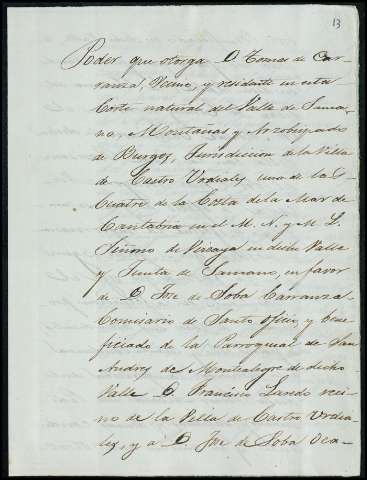 13
Poder que otorga D Tomas de Car-
ranza, Vecino, y residente en esta
Corte natural del Valle de Sama-
no, Montañas y Arzobispado
de Burgos, Jurisdicion de la Villa
de Castro Urdiales una de las
Cuatro de la Costa de la Mar de
Cantabria en el M. N. y M. L.
Señorio de Vizcaya en dicho Valle
y Junta de Samano, en favor
de D. Jose de Soba Carranza
Comisario de Santo Oficio, y bene-
ficiado de la Parroquial de San
Andres de Montealegre de dicho
Valle D. Francisco Laredo veci-
no de la Villa de Castro Urdia-
les, y a D. Jose de Soba Oca-